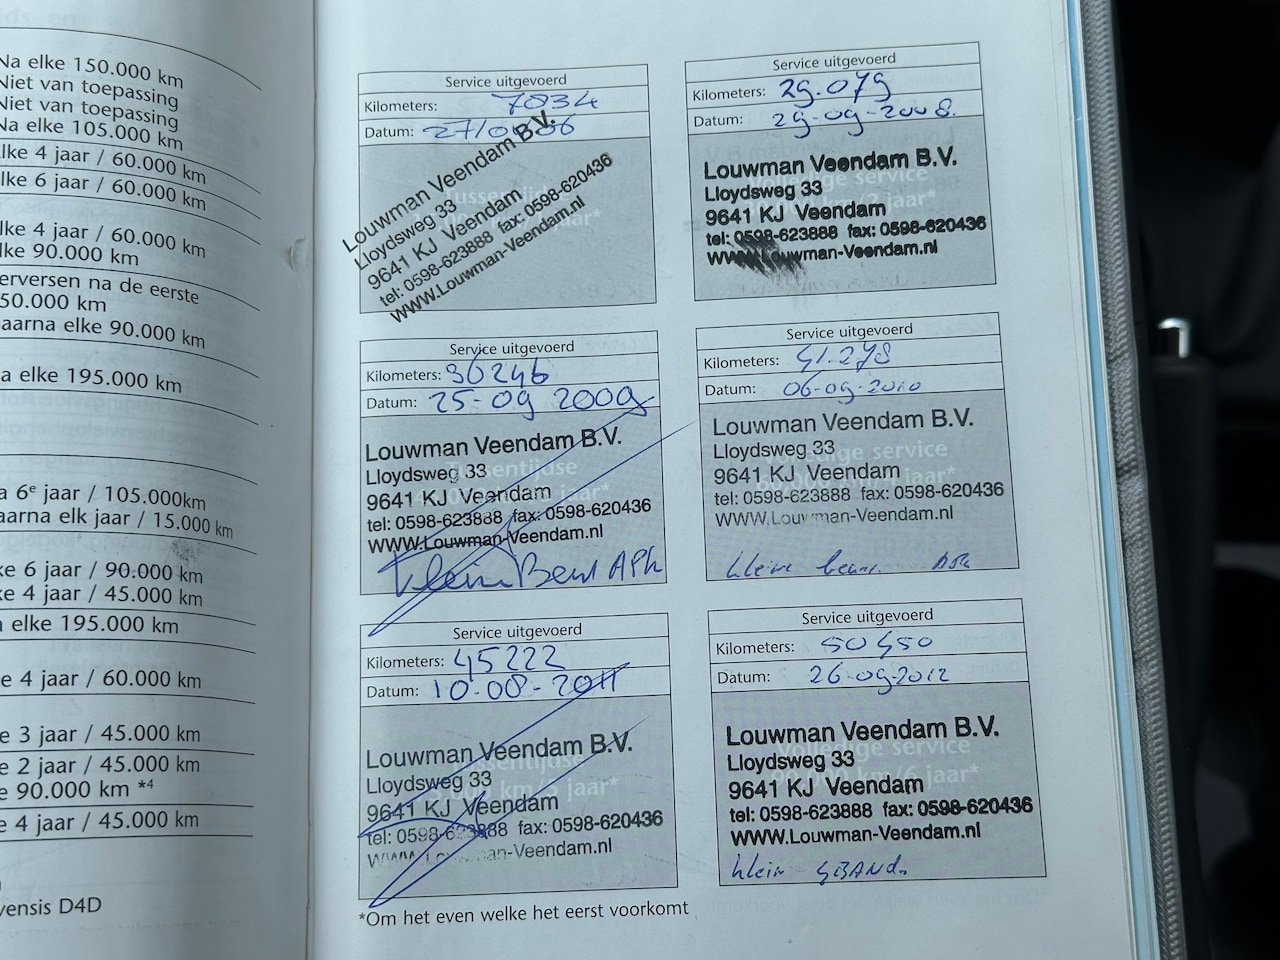 Na elke 150.000 km
Niet van toepassing
Niet van toepassing
Na elke 105.000 km
lke 4 jaar / 60.000 km
lke 6 jaar / 60.000 km
lke 4 jaar / 60.000 km
lke 90.000 km
erversen na de eerste
50.000 km
aarna elke 90.000 km
a elke 195.000 km
a 6e jaar / 105.000km
aarna elk jaar / 15.000 km
ke 6 jaar / 90.000 km
ke 4 jaar / 45.000 km
elke 195.000 km
e 4 jaar / 60.000 km
e 3 jaar / 45.000 km
e 2 jaar / 45.000 km
e 90.000 km *4
e 4 jaar / 45.000 km
vensis D4D
Service uitgevoerd
Kilometers: 7034
Datum: 27/04/06
Louwman Veendam B.V.
Lloydsweg 33
9641 KJ Veendam
tel: 0598-623888 fax: 0598-620436
WWW.Louwman-Veendam.nl
Service uitgevoerd
Kilometers: 29.079
Datum: 29-09-2008.
Volledige service
Louwman Veendam B.V.
Lloydsweg 33
9641 KJ Veendam
tel: 0598-623888 fax: 0598-620436
WWW.Louwman-Veendam.nl
Service uitgevoerd
Kilometers: 36246
Datum: 25-09 2009
Tussentijdse
Louwman Veendam B.V.
Lloydsweg 33
9641 KJ Veendam
tel: 0598-623888 fax: 0598-620436
WWW.Louwman-Veendam.nl
Klein Beurt APK
Service uitgevoerd
Kilometers: 41.278
Datum: 06-09-2010
Volledige service
Louwman Veendam B.V.
Lloydsweg 33
9641 KJ Veendam
tel: 0598-623888 fax: 0598-620436
WWW.Louwman-Veendam.nl
kleine beurt APK
Service uitgevoerd
Kilometers: 45222
Datum: 10-08-2011
Tussentijdse
km/5 jaar*
Louwman Veendam B.V.
Lloydsweg 33
9641 KJ Veendam
tel: 0598-623888 fax: 0598-620436
WWW.Louwman-Veendam.nl
Service uitgevoerd
Kilometers: 50450
Datum: 26-09-2012
Volledige service
km/6 jaar*
Louwman Veendam B.V.
Lloydsweg 33
9641 KJ Veendam
tel: 0598-623888 fax: 0598-620436
WWW.Louwman-Veendam.nl
klein
*Om het even welke het eerst voorkomt